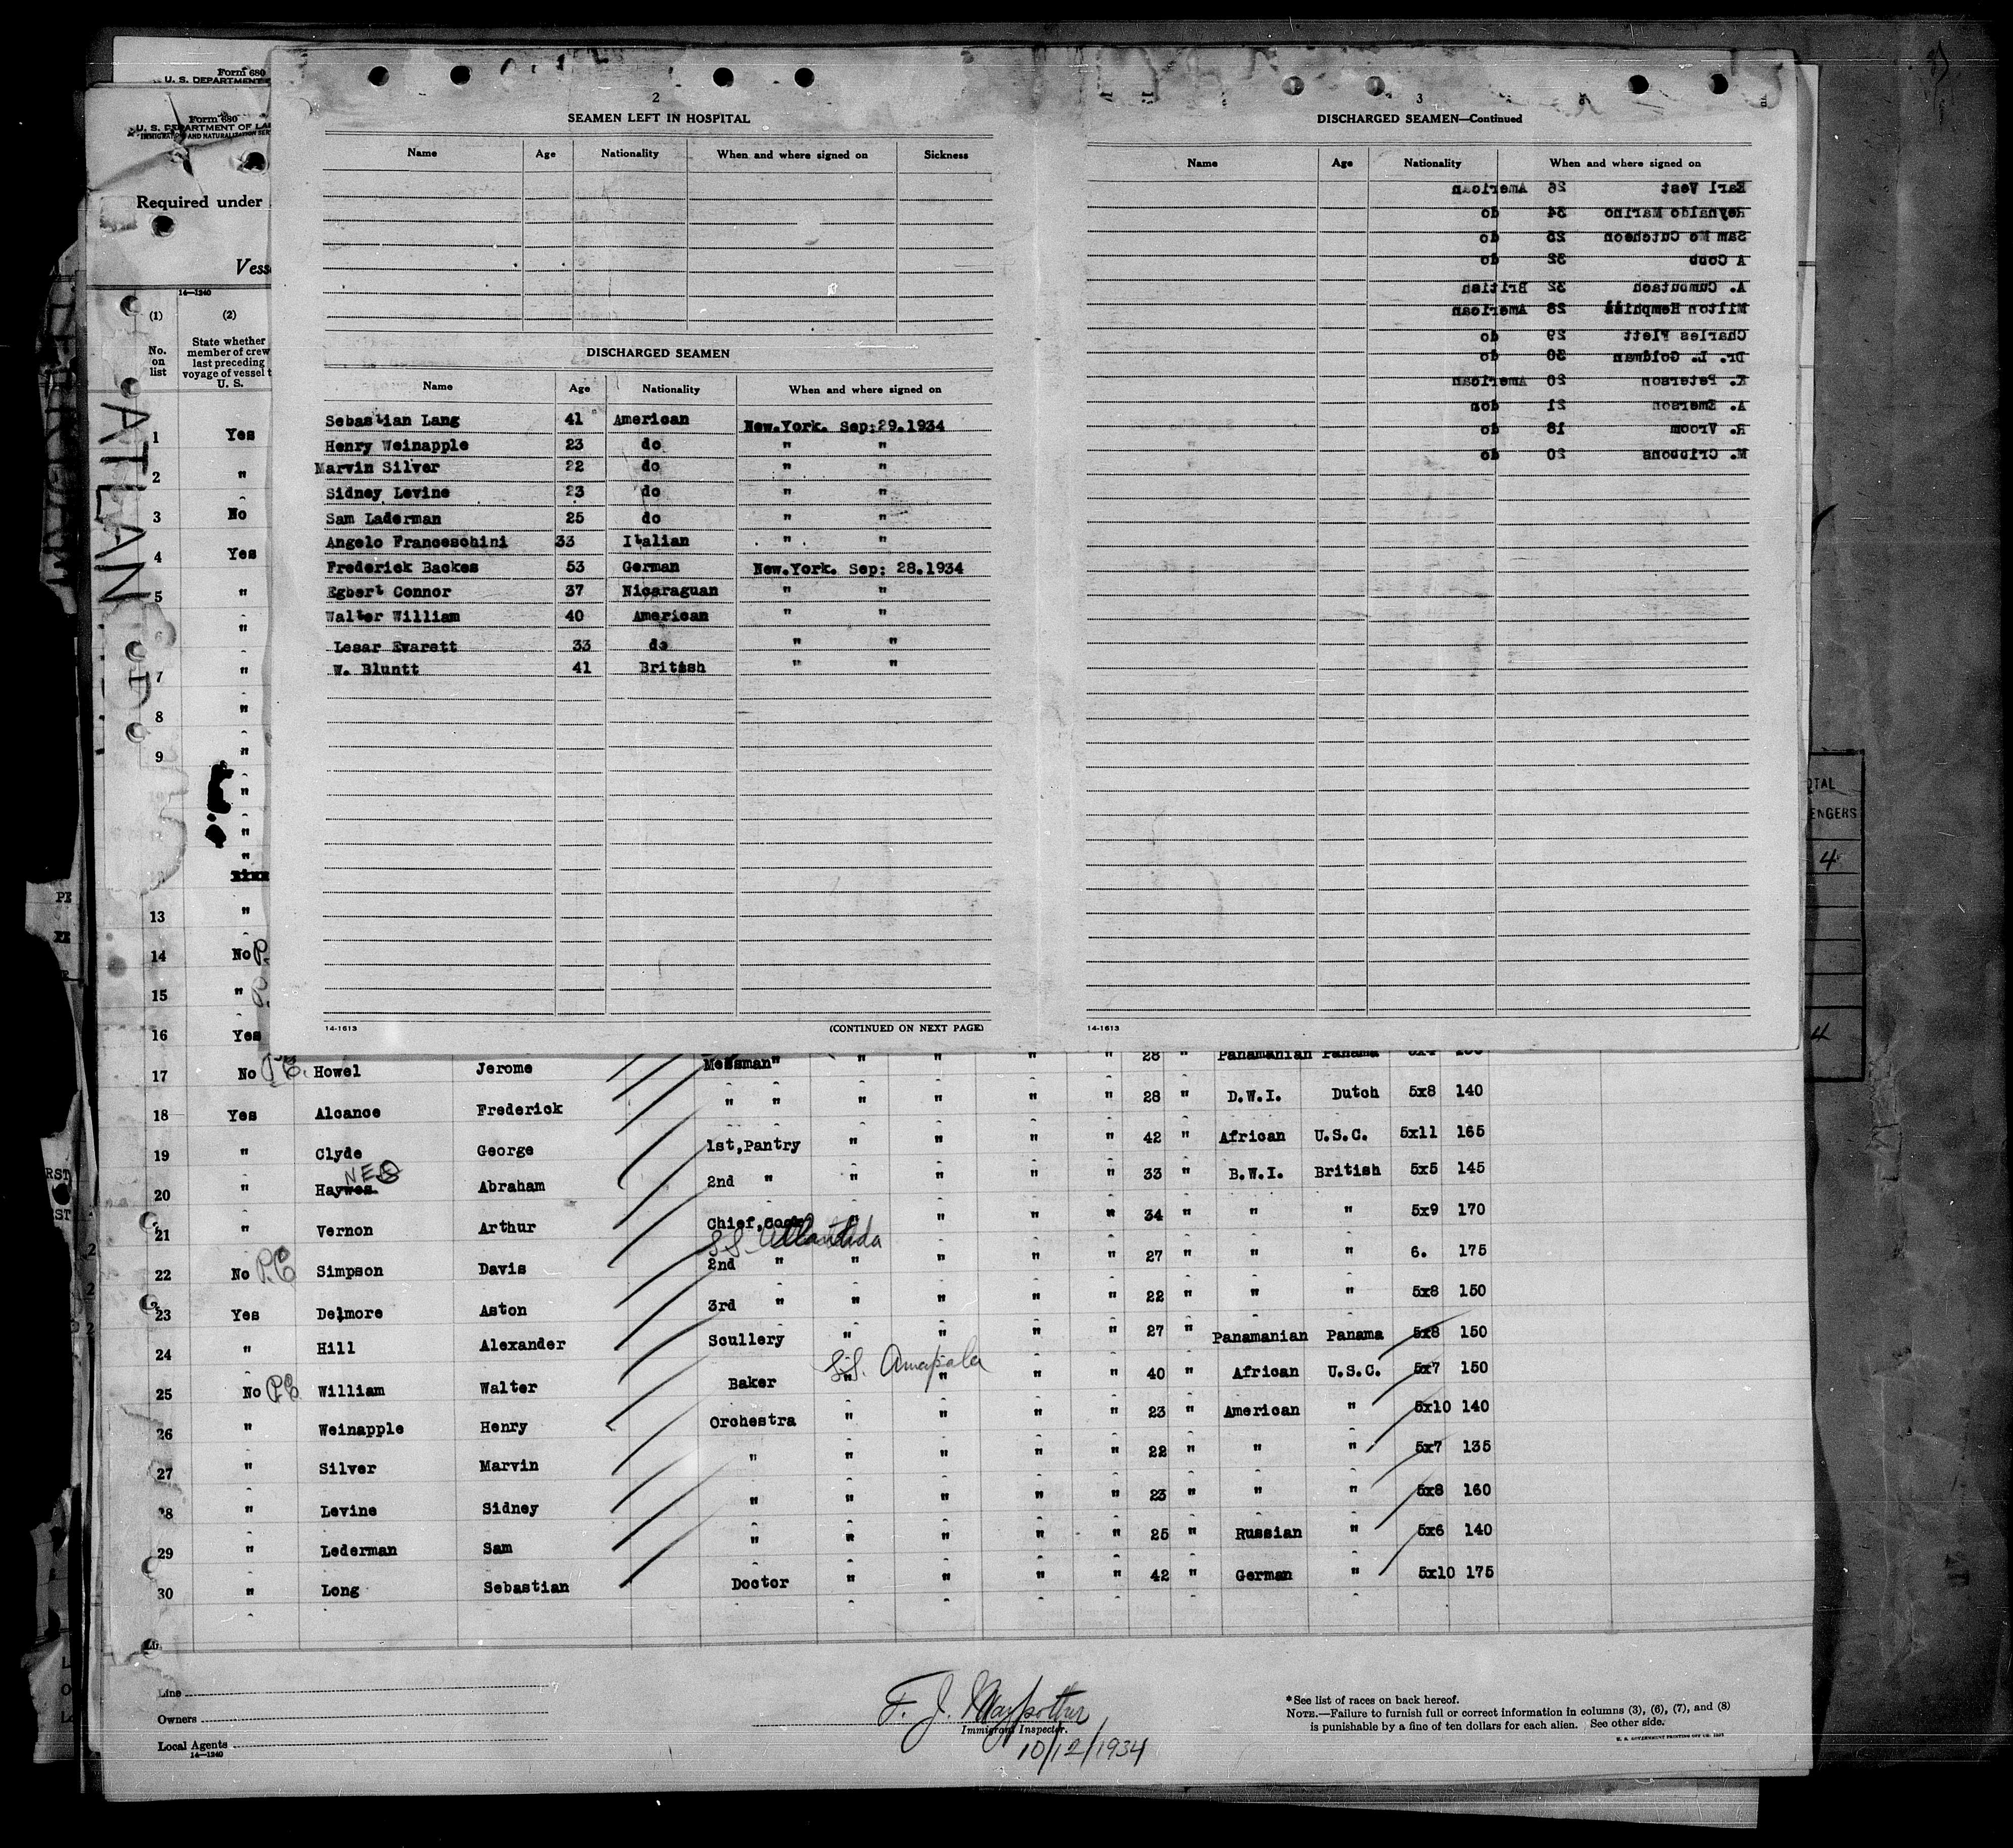 Form 680
U. S. DEPARTMENT
Form 680
U. S. DEPARTMENT OF LA
IMMIGRATION AND NATURALIZATION SER
Required under
Vess
14—1240
(1) (2)
No. on list
State whether member of crew last preceding voyage of vessel t U. S.
ATLAN
1 Yes
2 "
3 No
4 Yes
5 "
"
7 "
8 "
9 "
"
"
"
13 "
14 No P.
15 " P.
16 Yes
2
SEAMEN LEFT IN HOSPITAL
Name Age Nationality When and where signed on Sickness
DISCHARGED SEAMEN
Name Age Nationality When and where signed on
Sebastian Lang 41 American New.York. Sep;29.1934
Henry Weinapple 23 do " "
Marvin Silver 22 do " "
Sidney Levine 23 do " "
Sam Laderman 25 do " "
Angelo Franceschini 33 Italian " "
Frederick Backes 53 German New.York. Sep: 28.1934
Egbert Connor 37 Nicaraguan " "
Walter William 40 American " "
Lesar Evarett 33 do " "
W. Bluntt 41 British " "
14-1613 (CONTINUED ON NEXT PAGE)
3
DISCHARGED SEAMEN—Continued
Name Age Nationality When and where signed on
Earl Vest 26 American
Reynaldo Marino 34 do
Sam Mc Cutcheon 25 do
A Cobb 32 do
A. 32 British
Milton 28 American
Charles Flett 29 do
Dr. L. Goldman 30 do
K. Peterson 20 American
A. Emerson 21 don
R. Vroom 18 do
M. Gribbons 20 do
14-1613
OTAL
ENGERS
4
4
Messman" " " " " 28 " Panamanian Panama
17 No P.C. Howel Jerome
18 Yes Alcance Frederick " " " " " " 28 " D.W.I. Dutch 5x8 140
19 " Clyde George 1st,Pantry " " " " 42 " African U.S.C. 5x11 165
NES
20 " Haywes Abraham 2nd " " " " " 33 " B.W.I. British 5x5 145
21 " Vernon Arthur Chief,Cook " " " " 34 " " " 5x9 170
S.S. Atlantida
22 No P.C Simpson Davis 2nd " " " " " 27 " " " 6. 175
23 Yes Delmore Aston 3rd " " " " " 22 " " " 5x8 150
24 " Hill Alexander Scullery " " " " 27 " Panamanian Panama 5x8 150
S.S. Amapala
25 No P.C. William Walter Baker " " " " 40 " African U.S.C. 5x7 150
26 " Weinapple Henry Orchestra " " " " 23 " American " 5x10 140
27 " Silver Marvin " " " " " 22 " " " 5x7 135
28 " Levine Sidney " " " " " 23 " " " 5x8 160
29 " Lederman Sam " " " " " 25 " Russian " 5x6 140
30 " Long Sebastian Doctor " " " " 42 " German " 5x10 175
Line
Owners
Local Agents
14—1240
F. J.
Immigrant Inspector.
10/12/1934
*See list of races on back hereof.
NOTE.—Failure to furnish full or correct information in columns (3), (6), (7), and (8)
is punishable by a fine of ten dollars for each alien. See other side.